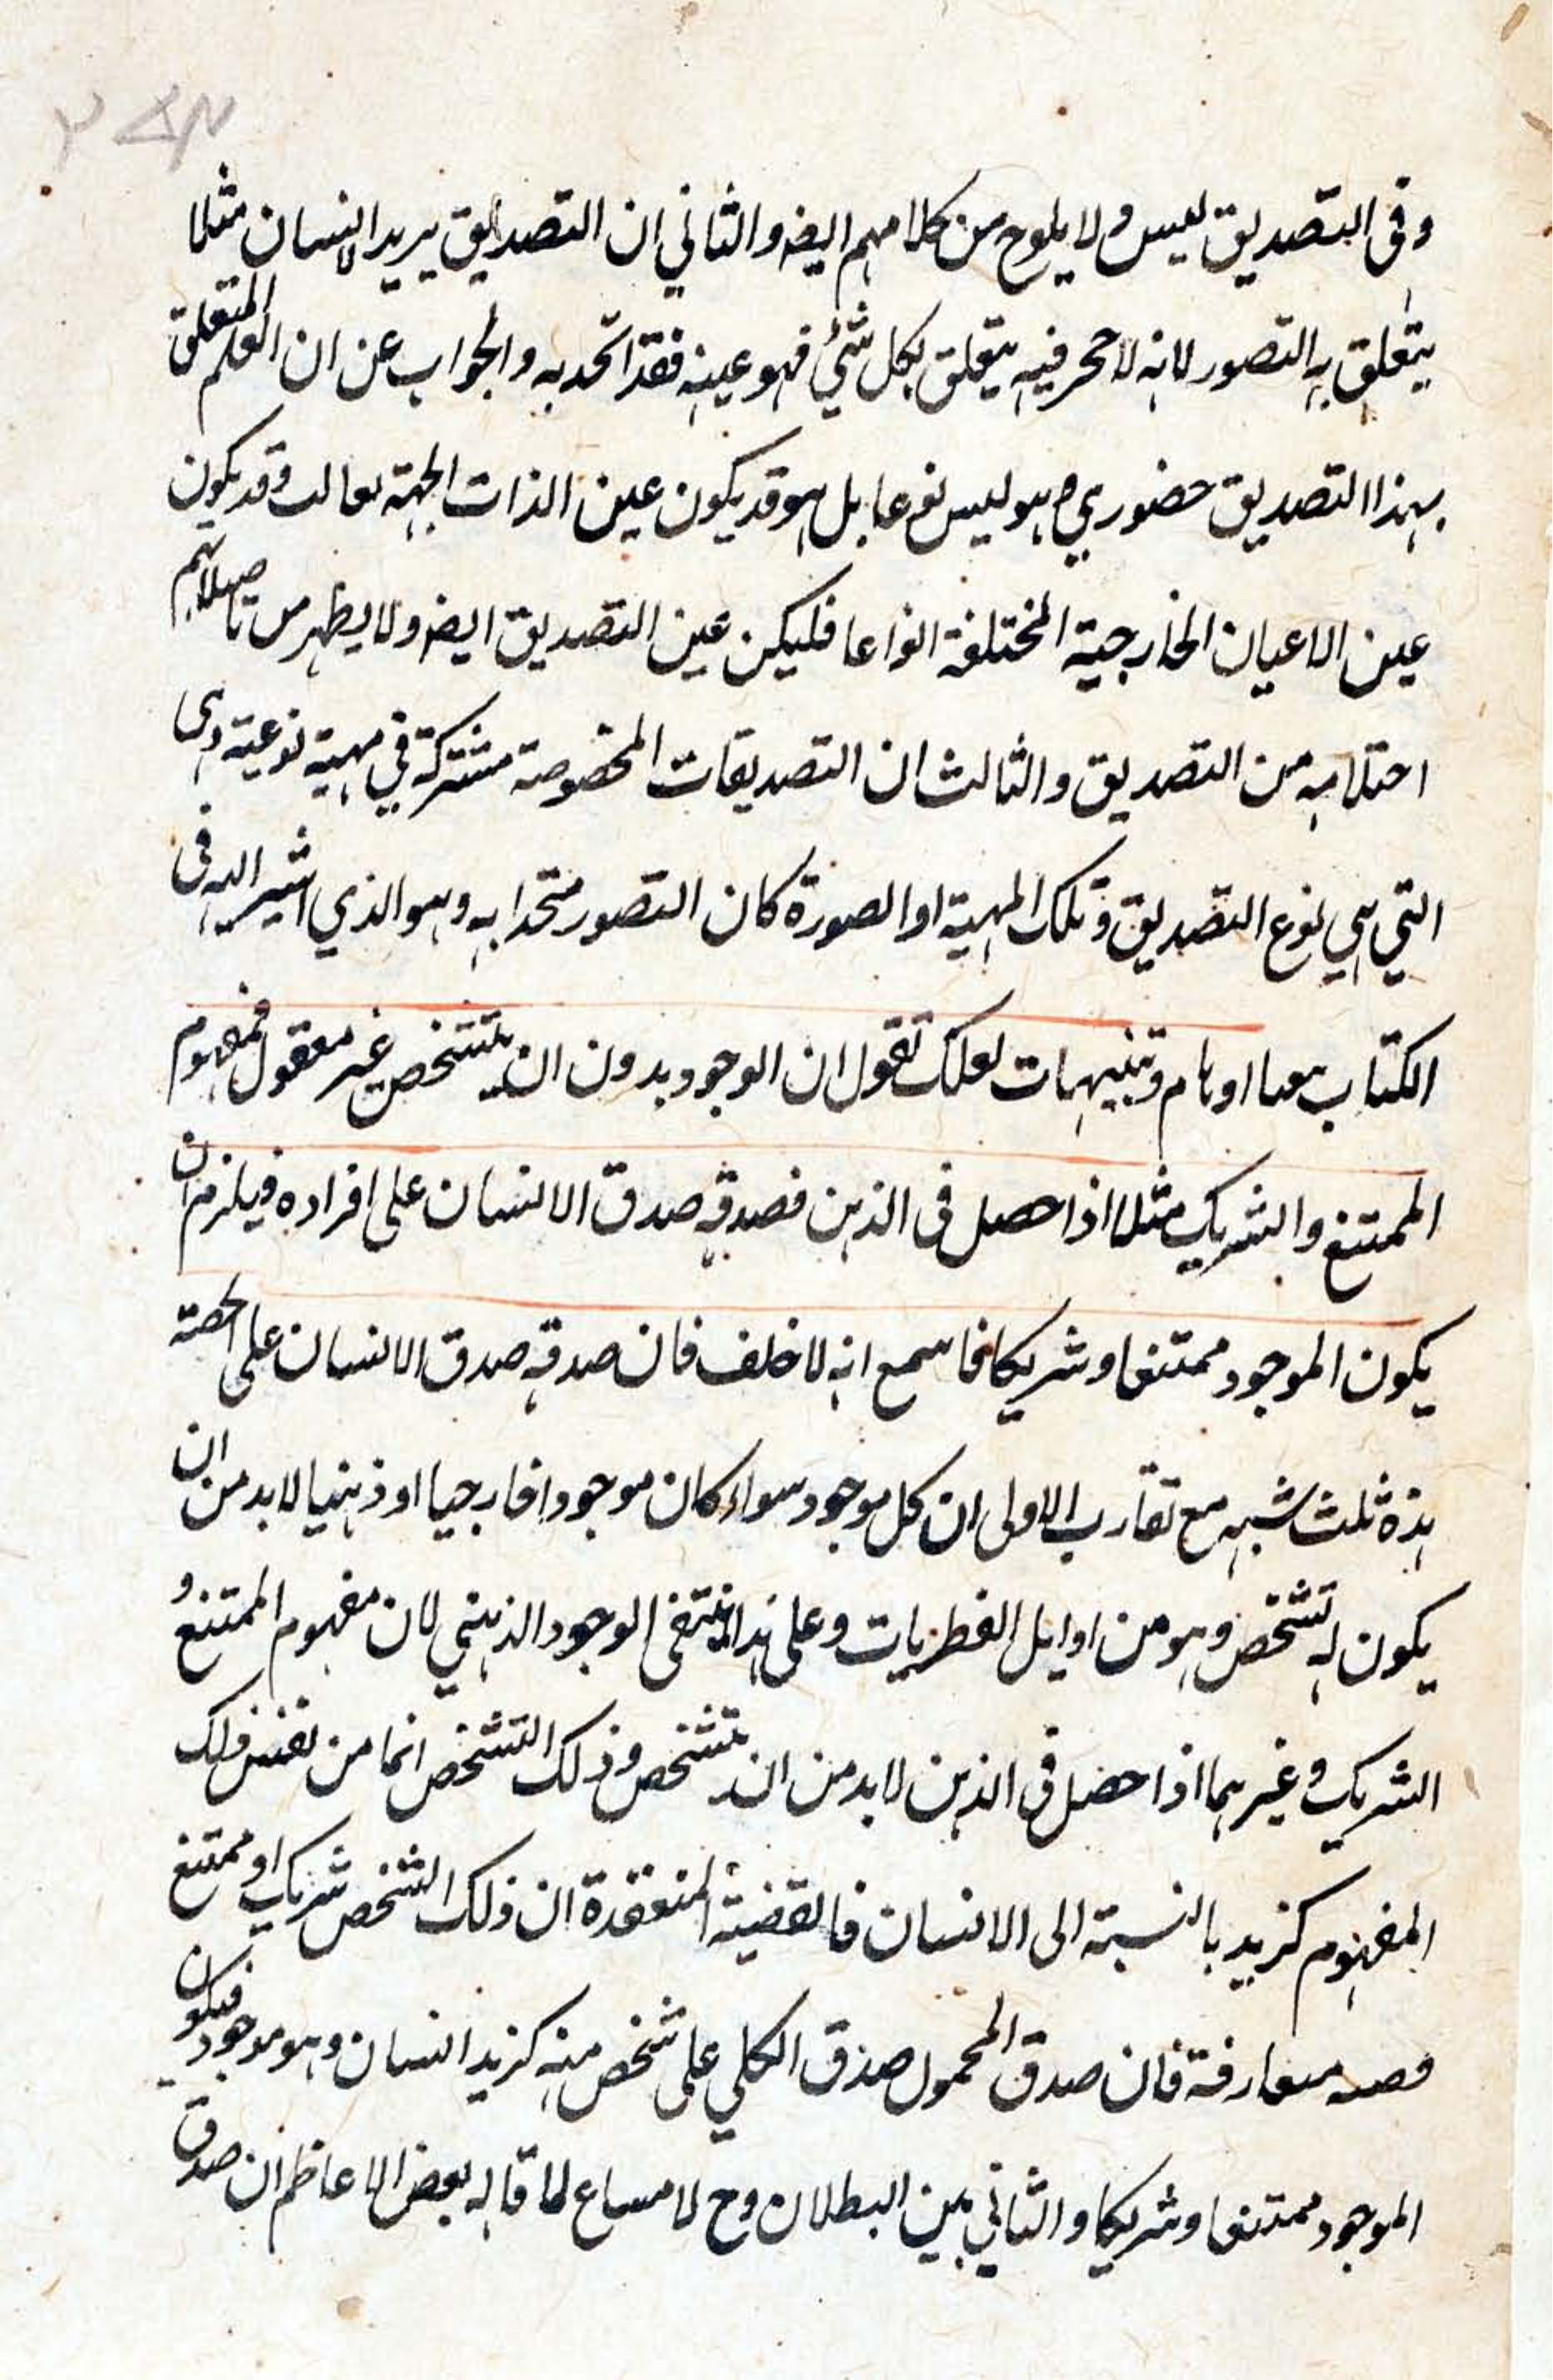 وفى التصديق ليس ولا يلوح من كلامهم ايضه والثاني ان التصديق يريد الانسان مثلا
يتعلق به التصور لانه لا حجر فيه يتعلق بكل شئ فهو عينه فقد اتحد به والجواب عن ان العلم المتعلق
بهذا التصديق حضوري وهو ليس نوعا بل هو قد يكون عين الذات الجهة تعالت وقد يكون
عين الاعيان الخارجية المختلفة انواعا فليكن عين التصديق ايضه ولا يظهر من
من التصديق والثالث ان التصديقات المخصوصة مشتركة في مهية نوعية وهى
التي هي نوع التصديق وتلك المهية او الصورة كان التصور متحدا به وهو الذي اشير اليه فى
الكتاب معنا اوهام وتنبيهات لعلك تقول ان الوجود بدون ان يتشخص غير معقول فمفهوم
الممتنع والشريك مثلا اذا حصل فى الذهن فصدقه صدق الانسان على افراده فيلزم ان
يكون الموجود ممتنعا وشريكا فاسمع انه لا خلف فان صدقه صدق الانسان على الحصة
هذه ثلث شبه مع تقارب الاولى ان كل موجود سواء كان موجودا خارجيا او ذهنيا لابد من ان
يكون له تشخص وهو من اوايل الفطريات وعلى هذا ينتفى الوجود الذهني لان مفهوم الممتنع و
الشريك وغيرهما اذا حصل فى الذهن لابد من ان يتشخص وذلك التشخص انما من نفس ذلك
المفهوم كزيد بالنسبة الى الانسان فالقضية المنعقدة ان ذلك الشخص شريك او ممتنع
متعارفة فان صدق المحمول صدق الكلي على شخص منه كزيد انسان وهو موجود فيكون
الموجود ممتنعا وشريكا والثاني بين البطلان وح لا مساغ لما قاله بعض الاعاظم ان صدق